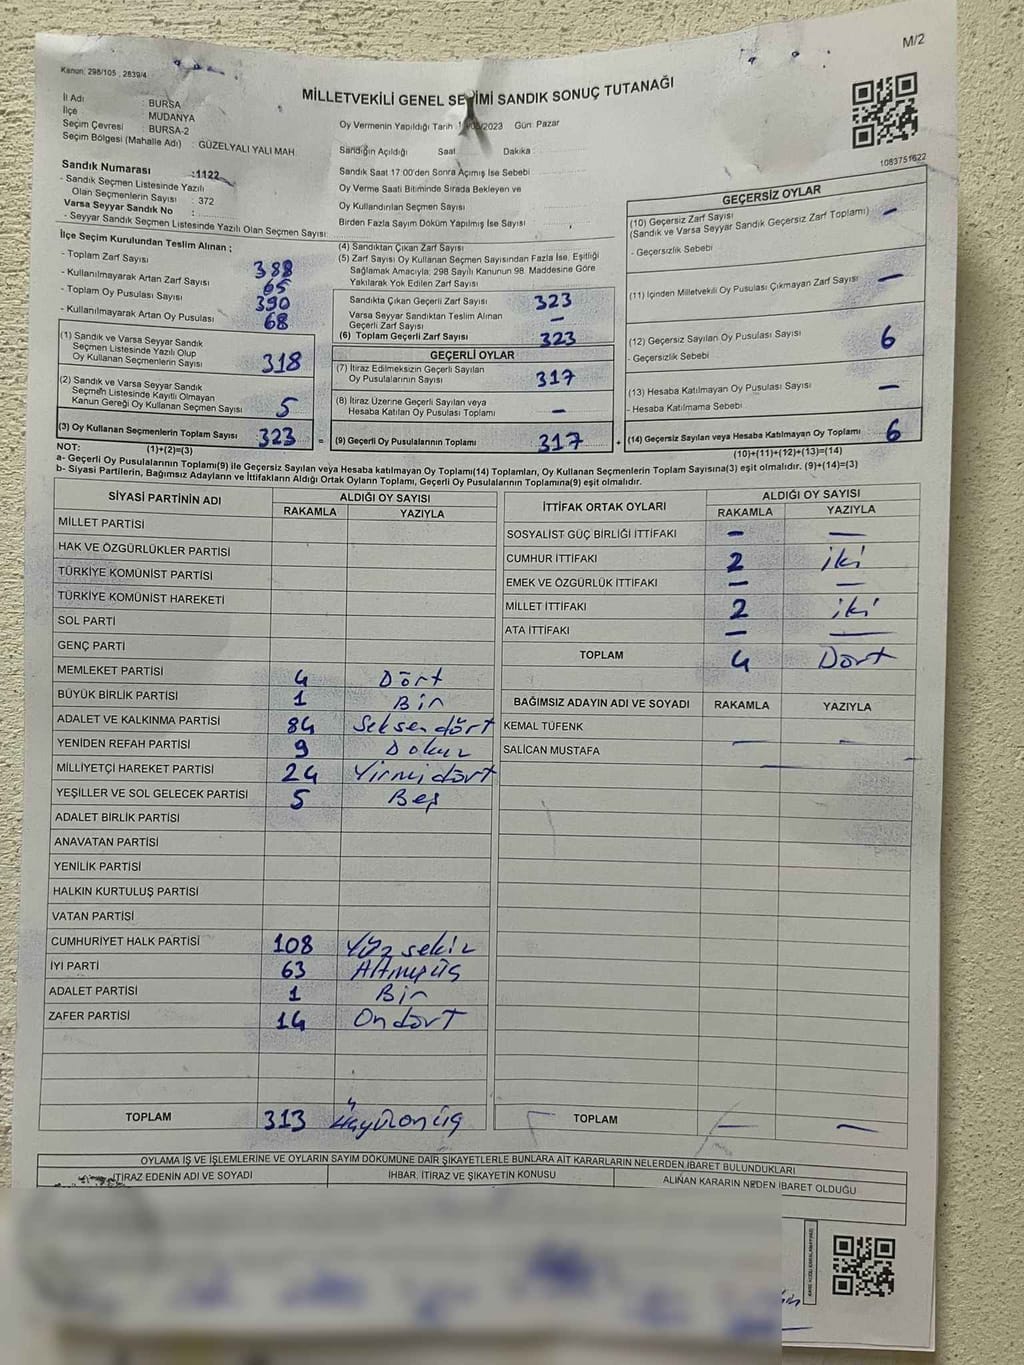 M/2
Kanun: 298/105 , 2839/4
MİLLETVEKİLİ GENEL SEÇİMİ SANDIK SONUÇ TUTANAĞI
İl Adı : BURSA
İlçe : MUDANYA
Seçim Çevresi : BURSA-2
Seçim Bölgesi (Mahalle Adı) : GÜZELYALI YALI MAH
Sandık Numarası :1122
- Sandık Seçmen Listesinde Yazılı
Olan Seçmenlerin Sayısı : 372
Varsa Seyyar Sandık No :
- Seyyar Sandık Seçmen Listesinde Yazılı Olan Seçmen Sayısı:
Oy Vermenin Yapıldığı Tarih : /2023 Gün: Pazar
Sandığın Açıldığı Saat Dakika :
Sandık Saat 17:00'den Sonra Açımış İse Sebebi
Oy Verme Saati Bitiminde Sırada Bekleyen ve
Oy Kullandırılan Seçmen Sayısı
Birden Fazla Sayım Döküm Yapılmış İse Sayısı
1083751622
İlçe Seçim Kurulundan Teslim Alınan ;
- Toplam Zarf Sayısı 388
- Kullanılmayarak Artan Zarf Sayısı 65
- Toplam Oy Pusulası Sayısı 390
- Kullanılmayarak Artan Oy Pusulası 68
(1) Sandık ve Varsa Seyyar Sandık
Seçmen Listesinde Yazılı Olup
Oy Kullanan Seçmenlerin Sayısı 318
(2) Sandık ve Varsa Seyyar Sandık
Seçmen Listesinde Kayıtlı Olmayan
Kanun Gereği Oy Kullanan Seçmen Sayısı 5
(3) Oy Kullanan Seçmenlerin Toplam Sayısı 323 =
(4) Sandıktan Çıkan Zarf Sayısı
(5) Zarf Sayısı Oy Kullanan Seçmen Sayısından Fazla İse, Eşitliği
Sağlamak Amacıyla; 298 Sayılı Kanunun 98. Maddesine Göre
Yakılarak Yok Edilen Zarf Sayısı
Sandıkta Çıkan Geçerli Zarf Sayısı 323
Varsa Seyyar Sandıktan Teslim Alınan
Geçerli Zarf Sayısı —
(6) Toplam Geçerli Zarf Sayısı 323
GEÇERLİ OYLAR
(7) İtiraz Edilmeksizin Geçerli Sayılan
Oy Pusulalarının Sayısı 317
(8) İtiraz Üzerine Geçerli Sayılan veya
Hesaba Katılan Oy Pusulası Toplamı —
(9) Geçerli Oy Pusulalarının Toplamı 317 +
GEÇERSİZ OYLAR
(10) Geçersiz Zarf Sayısı
(Sandık ve Varsa Seyyar Sandık Geçersiz Zarf Toplamı) —
- Geçersizlik Sebebi
(11) İçinden Milletvekili Oy Pusulası Çıkmayan Zarf Sayısı —
(12) Geçersiz Sayılan Oy Pusulası Sayısı 6
- Geçersizlik Sebebi
(13) Hesaba Katılmayan Oy Pusulası Sayısı —
- Hesaba Katılmama Sebebi
(14) Geçersiz Sayılan veya Hesaba Katılmayan Oy Toplamı 6
NOT: (1)+(2)=(3) (10)+(11)+(12)+(13)=(14)
a- Geçerli Oy Pusulalarının Toplamı(9) ile Geçersiz Sayılan veya Hesaba katılmayan Oy Toplamı(14) Toplamları, Oy Kullanan Seçmenlerin Toplam Sayısına(3) eşit olmalıdır. (9)+(14)=(3)
b- Siyasi Partilerin, Bağımsız Adayların ve İttifakların Aldığı Ortak Oyların Toplamı, Geçerli Oy Pusulalarının Toplamına(9) eşit olmalıdır.
SİYASİ PARTİNİN ADI ALDIĞI OY SAYISI
RAKAMLA YAZIYLA
MİLLET PARTİSİ
HAK VE ÖZGÜRLÜKLER PARTİSİ
TÜRKİYE KOMÜNİST PARTİSİ
TÜRKİYE KOMÜNİST HAREKETİ
SOL PARTİ
GENÇ PARTİ
MEMLEKET PARTİSİ 4 Dört
BÜYÜK BİRLİK PARTİSİ 1 Bir
ADALET VE KALKINMA PARTİSİ 84 Seksendört
YENİDEN REFAH PARTİSİ 9 Dokuz
MİLLİYETÇİ HAREKET PARTİSİ 24 Yirmidört
YEŞİLLER VE SOL GELECEK PARTİSİ 5 Beş
ADALET BİRLİK PARTİSİ
ANAVATAN PARTİSİ
YENİLİK PARTİSİ
HALKIN KURTULUŞ PARTİSİ
VATAN PARTİSİ
CUMHURİYET HALK PARTİSİ 108 Yüz sekiz
İYİ PARTİ 63 Altmışüç
ADALET PARTİSİ 1 Bir
ZAFER PARTİSİ 14 Ondört
TOPLAM 313 Üçyüzonüç
İTTİFAK ORTAK OYLARI ALDIĞI OY SAYISI
RAKAMLA YAZIYLA
SOSYALİST GÜÇ BİRLİĞİ İTTİFAKI — —
CUMHUR İTTİFAKI 2 iki
EMEK VE ÖZGÜRLÜK İTTİFAKI — —
MİLLET İTTİFAKI 2 iki
ATA İTTİFAKI — —
TOPLAM 4 Dört
BAĞIMSIZ ADAYIN ADI VE SOYADI RAKAMLA YAZIYLA
KEMAL TÜFENK — —
SALİCAN MUSTAFA — —
TOPLAM — —
OYLAMA İŞ VE İŞLEMLERİNE VE OYLARIN SAYIM DÖKÜMÜNE DAİR ŞİKAYETLERLE BUNLARA AİT KARARLARIN NELERDEN İBARET BULUNDUKLARI
İTİRAZ EDENİN ADI VE SOYADI İHBAR, İTİRAZ VE ŞİKAYETİN KONUSU ALINAN KARARIN NEDEN İBARET OLDUĞU